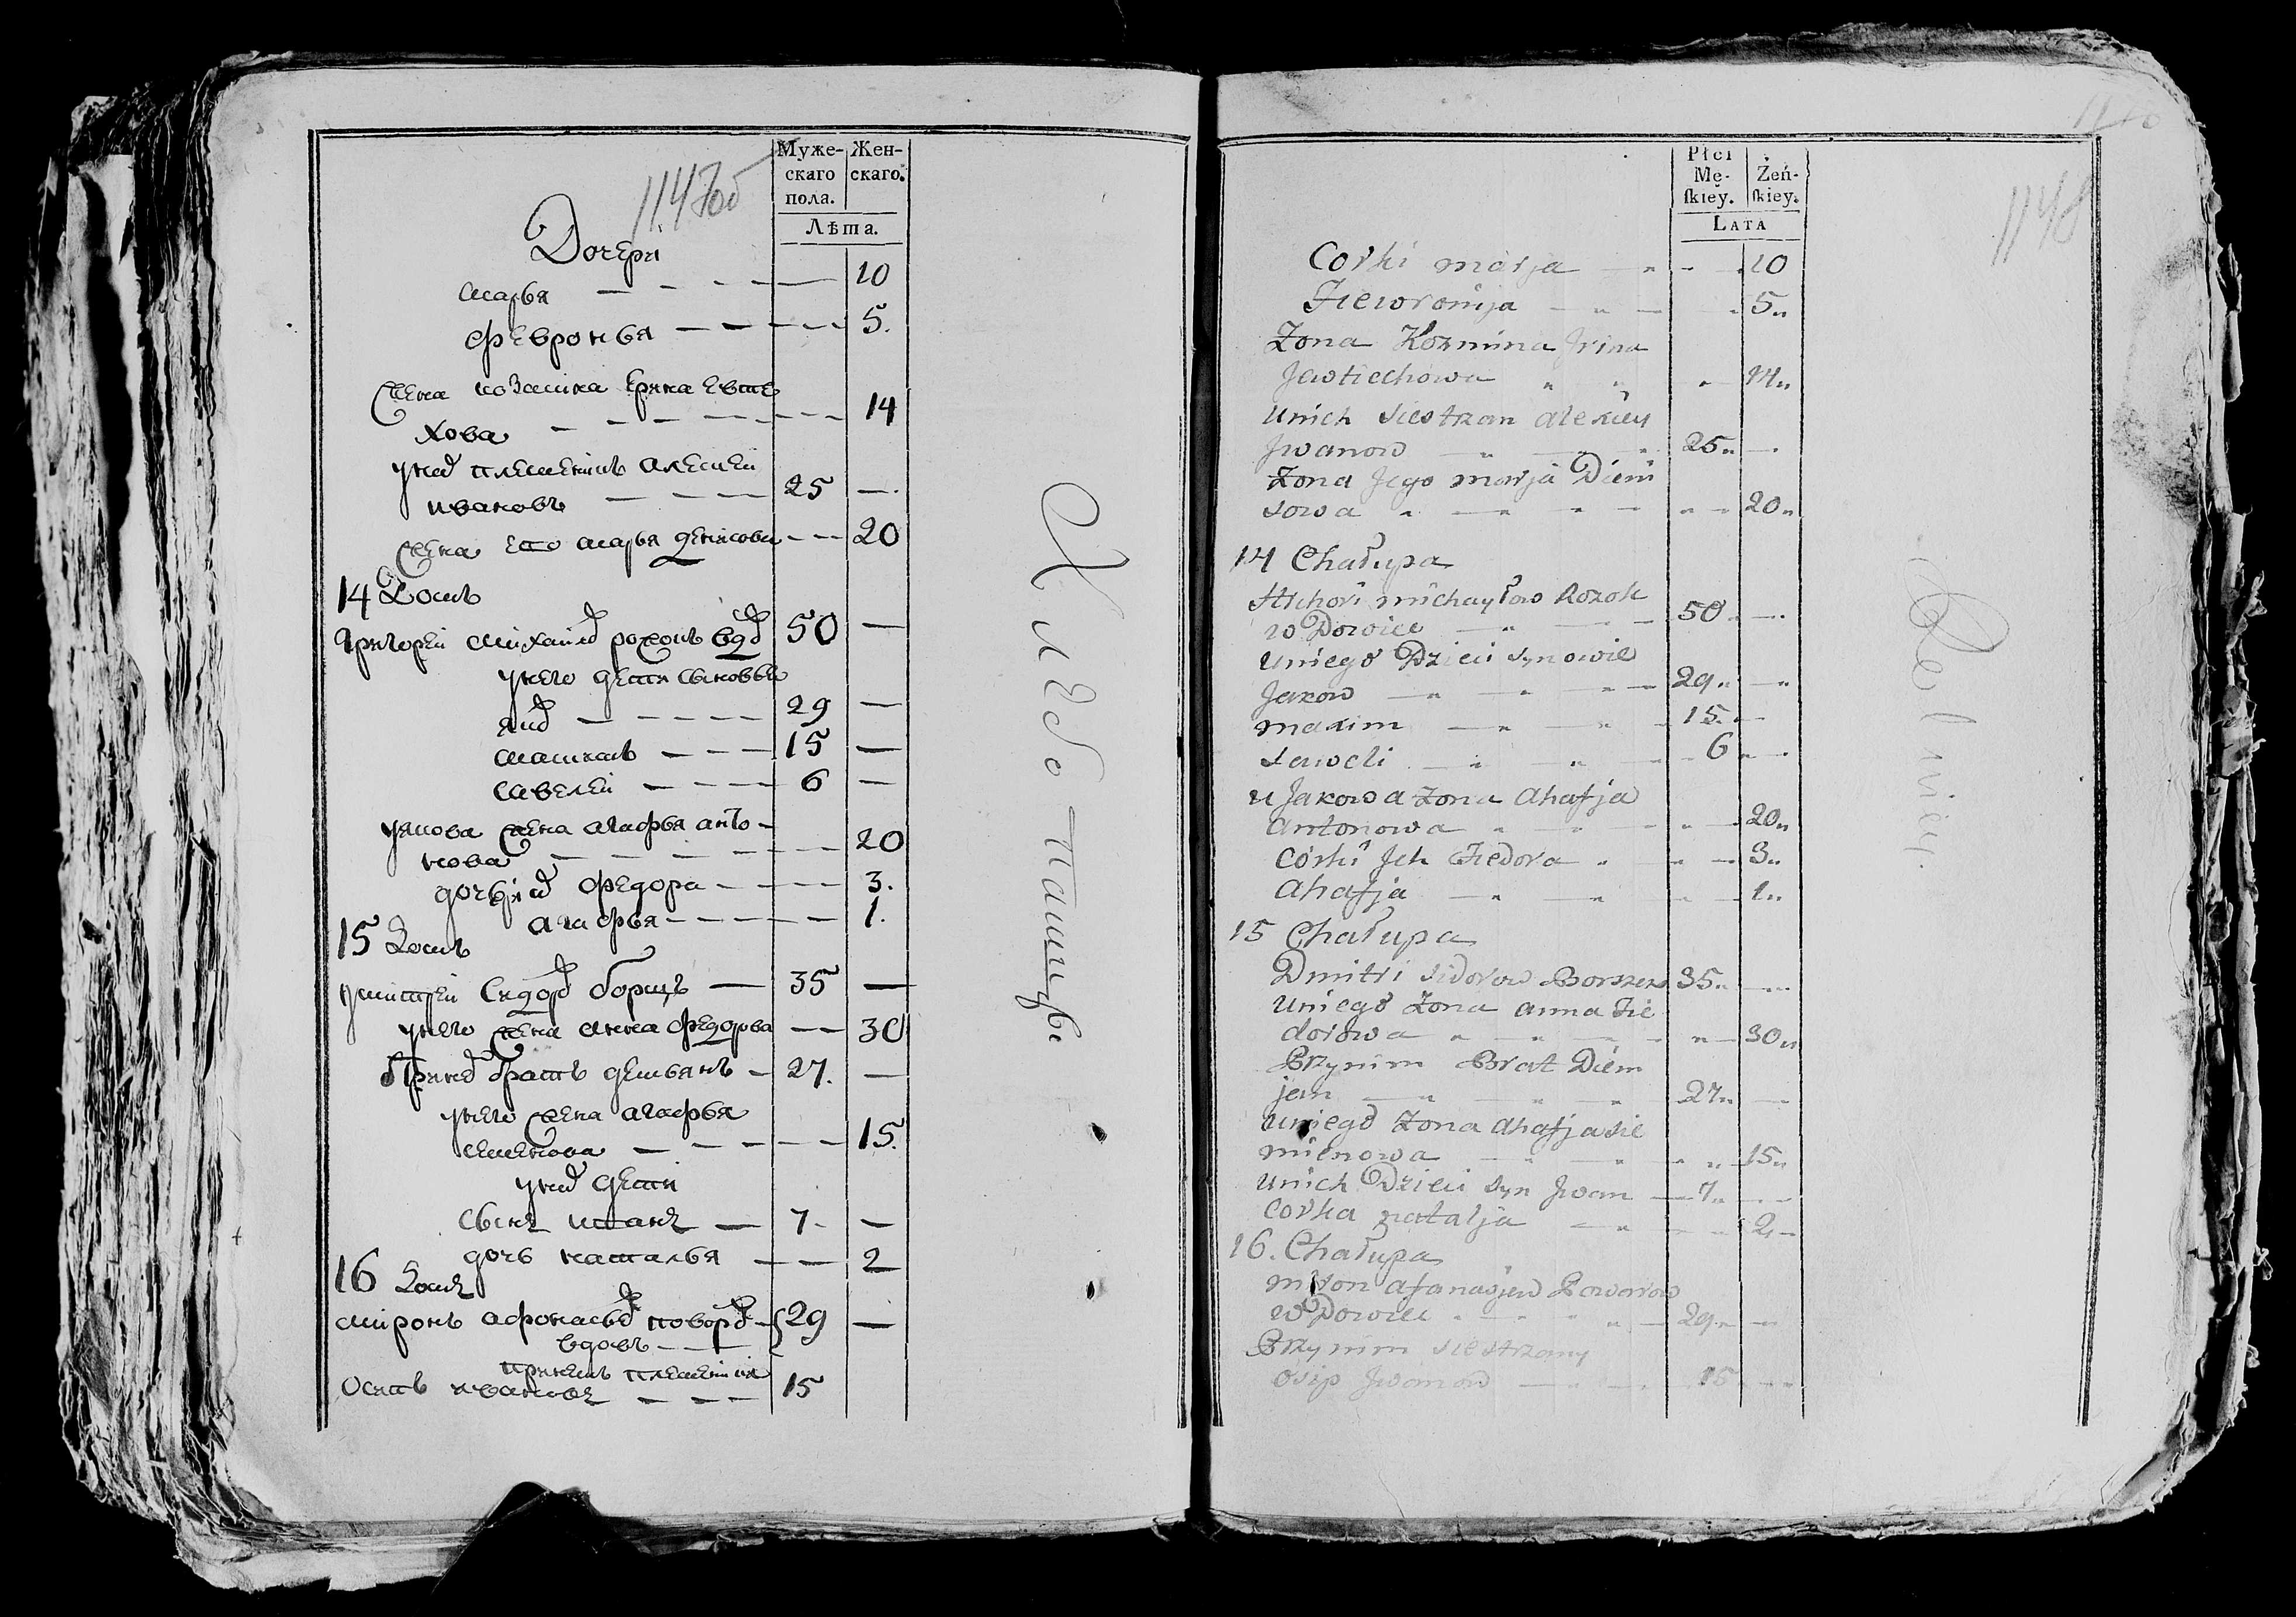 1147об
Муже- Жен-
скаго скаго.
пола.
Лѣта.
Дочери
марья — — 10
февронья — — 5.
жена козмина ирина евте
хова — — 14
у них племеникъ алексей
ивановъ — 25 —
жена его марья денисова — — 20
14 Домъ
григорей михайло вдо 50 —
у него дети сыновья
яко — 29 —
максимъ — 15 —
савелей — 6 —
у якова жена агафья анто-
нова — — 20
дочери их федора — — 3.
агафья — — 1.
15 Домъ
дмитрей сидоро борщъ — 35 —
у него жена анна федорова — 30
При нем братъ демьянъ — 27. —
у него жена агафья
семенова — — 15.
у них дети
сынъ иванъ — 7. —
дочь наталья — — 2
16 Домъ
миронъ афонасьев поворо — 29 —
вдовъ —
при немъ племеникъ
осипъ ивановъ — 15
Хлебо-пашцы
1148
Płci
Mę- Żeń-
ſkiey. ſkiey.
LATA
Corki marja — 10
Fieworonija — 5
Zona Kozmina Jrina
Jewtiechowa 14
unich siestrzan alexiey
Jwanow 25 —
Zona Jego marja Dieni
sowa — 20
14 Chałupa
Hrihori michayłow Rozok
wDowiec — 50 —
uniego Dzieci synowie
Jakow — 29 —
maxim — 15 —
saweli — 6 —
u Jakowa zona ahafja
antonowa — 20
corki Jch Fiedora — 3
ahafja — 1
15 Chałupa
Dmitri sidorow Borszcz 35 —
uniego zona anna Fie
dorowa — 30
Przynim Brat Diem
jan — 27 —
uniego zona ahafja sie
mienowa — 15
unich Dzieci syn Jwan — 7 —
corka natalja — 2
16. Chałupa
miron afanasjew Poworow
wDowiec — 29 —
Przynim siestrzany
osip Jwanow — 15 —